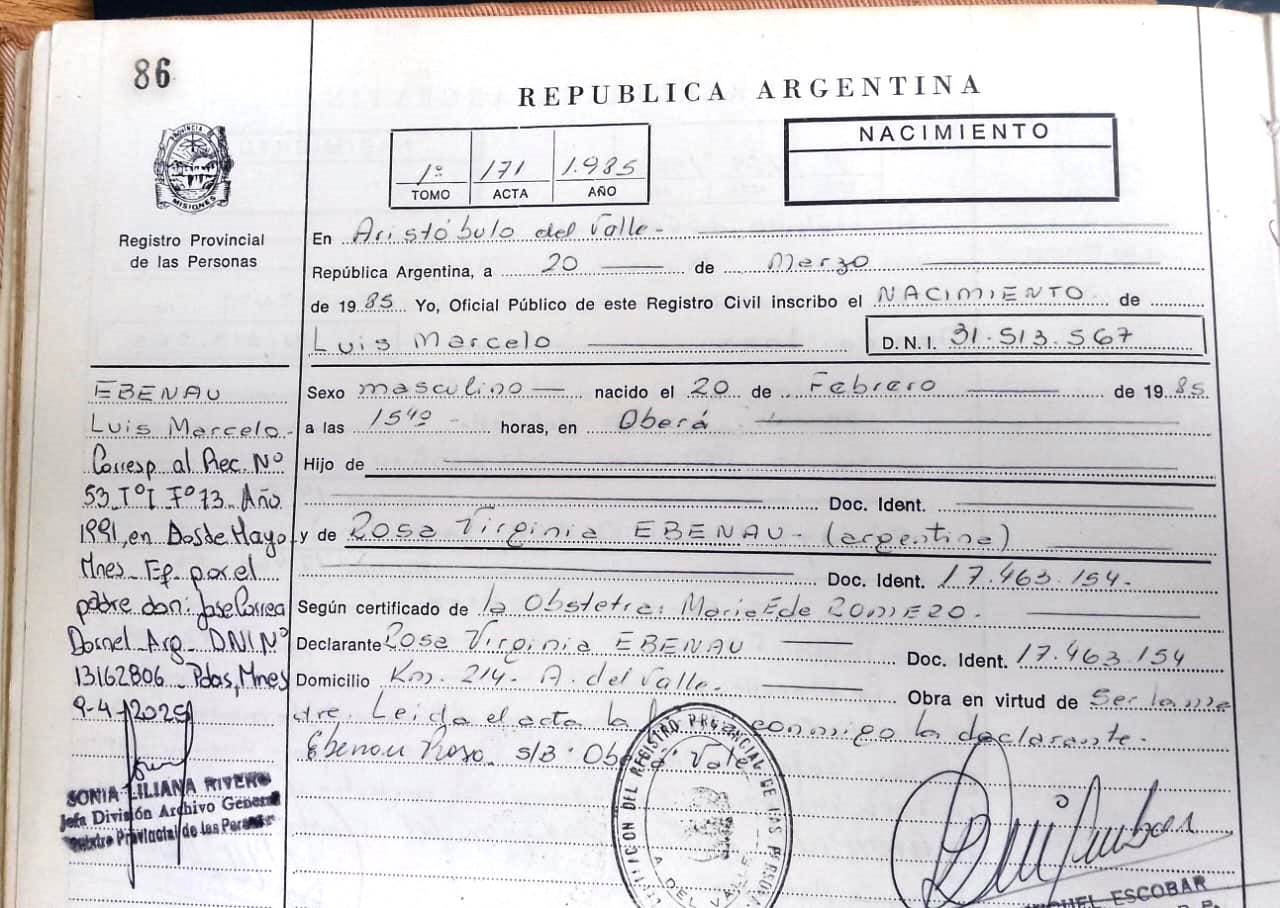 86
REPUBLICA ARGENTINA
1º 171 1.985
TOMO ACTA AÑO
NACIMIENTO
MISIONES
Registro Provincial
de las Personas
En Aristóbulo del Valle.-
República Argentina, a 20 de Marzo
de 1985 Yo, Oficial Público de este Registro Civil inscribo el NACIMIENTO de
Luis Marcelo D.N.I. 31.513.567
Sexo masculino nacido el 20 de Febrero de 1985.
a las 15 horas, en Oberá
Hijo de
Doc. Ident.
y de Rosa Virginia EBENAU - (argentina)
Doc. Ident. 17.463.154.-
Según certificado de la Obstetra: Maria E de ROMERO.
Declarante Rosa Virginia EBENAU Doc. Ident. 17.463.154
Domicilio Km. 214- A. del Valle. Obra en virtud de Ser la ma
dre. Leida el acta la conmigo la declarante.
Ebenau Rosa. s/B: Oberá: Vale
EBENAU
Luis Marcelo.-
Corresp al Rec. Nº
53 Tº I Fº 73. Año
1991, en Dos de Mayo
Mnes. Ef. por el
padre don: Jose Correa
Dornel Arg. DNI Nº
13162806 _ Pdas, Mnes
9-4-2025
SONIA LILIANA RIVERO
Jefa División Archivo General
Registro Provincial de las Personas
DEL REGISTRO PROVINCIAL DE LAS PERSONAS
A. DEL VALLE
MIGUEL ESCOBAR